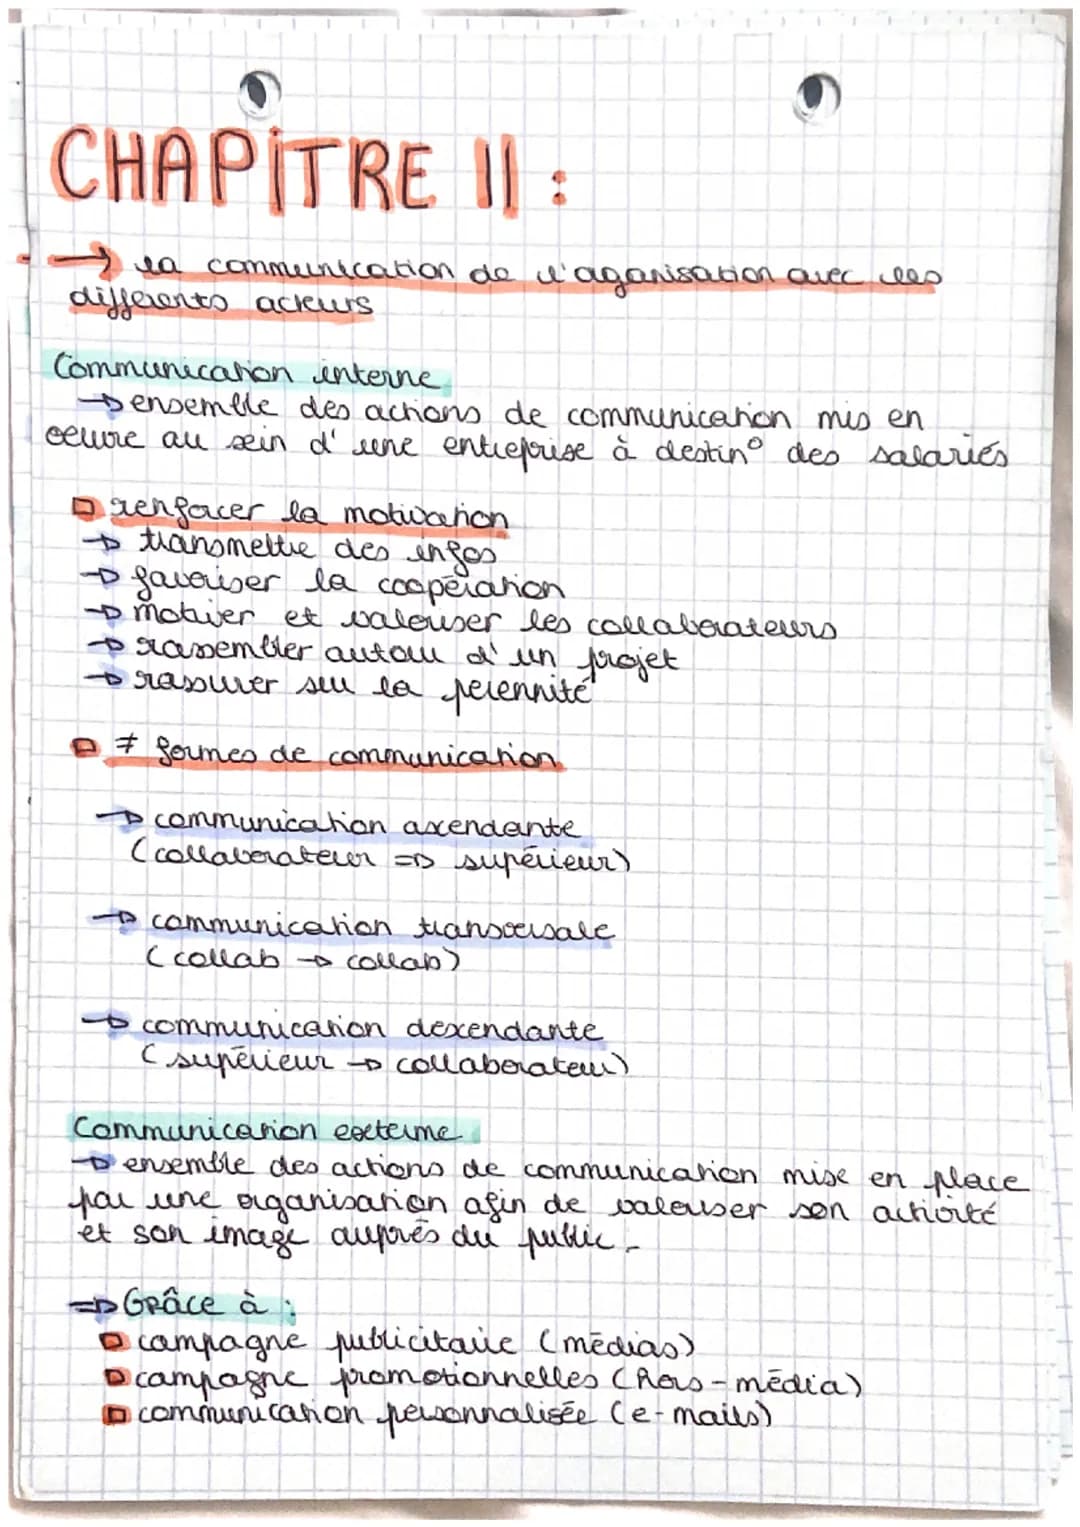 CHAPITRE II :
→ la communication de l'aganisation avec les
différents acteurs
Communication interne
→ ensemble des actions de communication mis en
oeuvre au sein d'une entreprise à destin° des salariés
renforcer la motivation
→ transmettre des infos
→ favoriser la coopération
→ motiver et valoriser les collaborateurs
→ rassembler autour d'un projet
→ rassurer sur la pérennité
≠ formes de communication
→ communication ascendante
(collaborateur => supérieur)
→ communication transversale
(collab → collab)
→ communication descendante
(supérieur → collaborateur)
Communication externe
→ ensemble des actions de communication mise en place
par une organisation afin de valoriser son activité
et son image auprès du public.
=> Grâce à :
campagne publicitaire (médias)
campagne promotionnelles (hors-média)
communication personnalisée (e-mails)